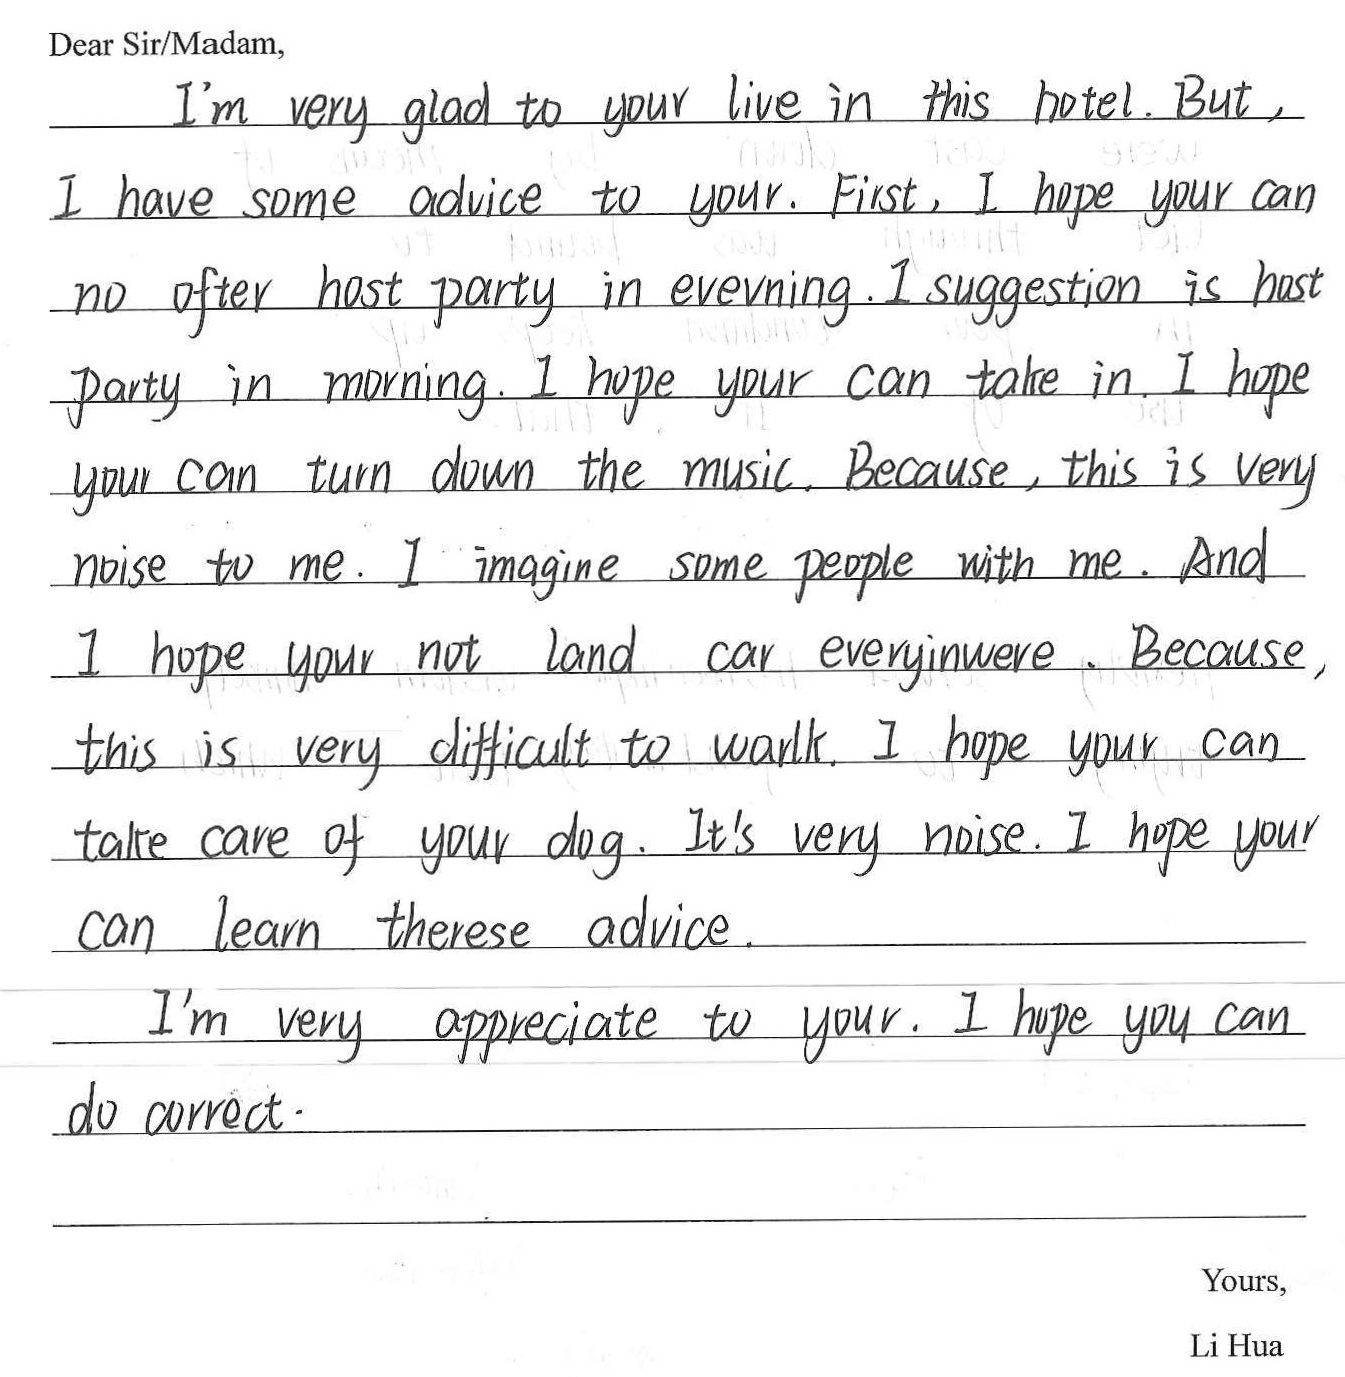 Dear Sir/Madam,
I'm very glad to your live in this hotel. But,
I have some advice to your. First, I hope your can
no ofter host party in evevning. I suggestion is host
party in morning. I hope your can take in. I hope
your can turn down the music. Because, this is very
noise to me. I imagine some people with me. And
I hope your not land car everyinwere. Because,
this is very difficult to warlk. I hope your can
take care of your dog. It's very noise. I hope your
can learn therese advice.
I'm very appreciate to your. I hope you can
do correct.
Yours,
Li Hua